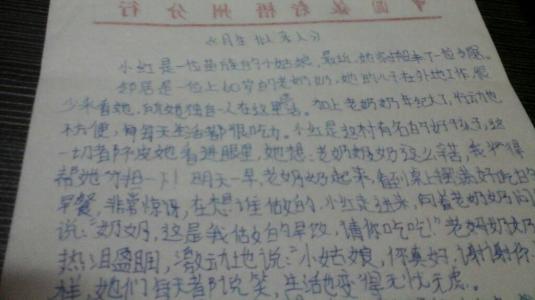 梧州分行
小红是一位的小姑娘,最近,她家搬来了一位
邻居是一位上60岁的老奶奶,她的儿子在外地工作,很
少来看她,她独自一人在这里活。加上老奶奶年纪大了,行动也
不方便,每天生活都很吃力。小红是这村有名的好孩子,这
一切都被她看进眼里,她想:老奶奶这么辛苦,我必得
帮她分担一下!明天一早,老奶奶起来,看到桌上摆满好吃的
早餐,非常惊讶,在想谁做的,小红走进来,向着老奶奶问
说:"奶奶,这是我做的早饭,请你吃吃!"老奶奶
热泪盈眶,激动地说:"小姑娘,你真好,谢谢你
样,她们每天都说笑,生活也变得无忧无虑。